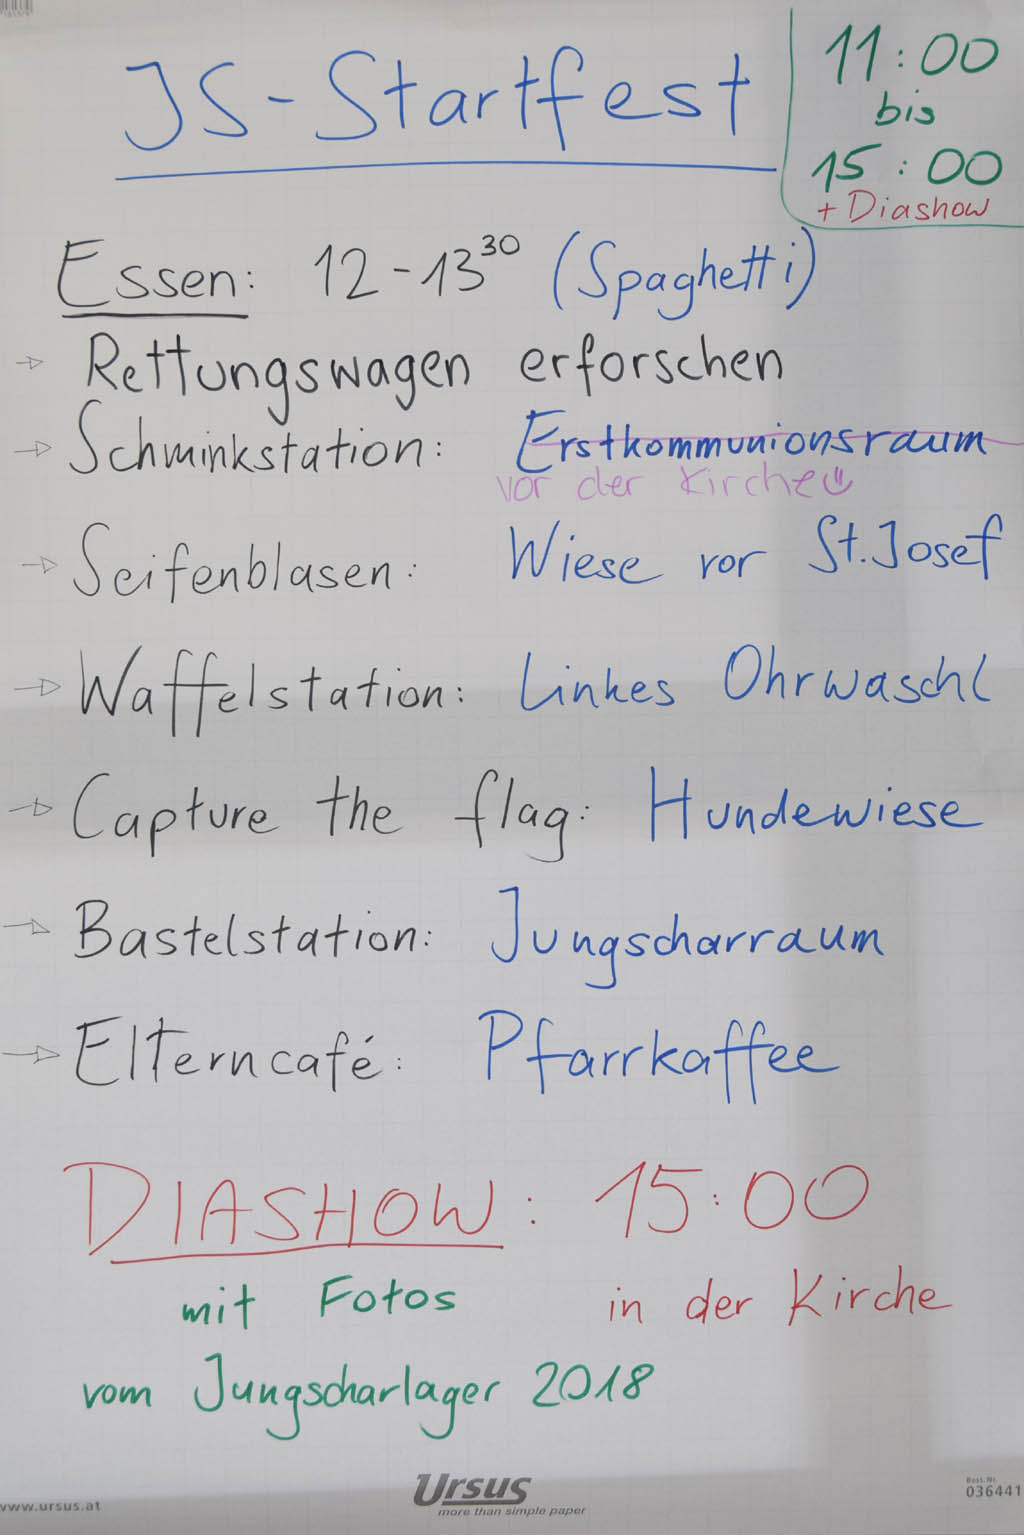 JS-Startfest
11:00
bis
15:00
+ Diashow
Essen: 12-13³⁰ (Spaghetti)
→ Rettungswagen erforschen
→ Schminkstation: Erstkommunionsraum
vor der Kirche
→ Seifenblasen: Wiese vor St. Josef
→ Waffelstation: Linkes Ohrwaschl
→ Capture the flag: Hundewiese
→ Bastelstation: Jungscharraum
→ Elterncafé: Pfarrkaffee
DIASHOW: 15:00
mit Fotos in der Kirche
vom Jungscharlager 2018
www.ursus.at
Ursus
more than simple paper
Best. Nr.
036441